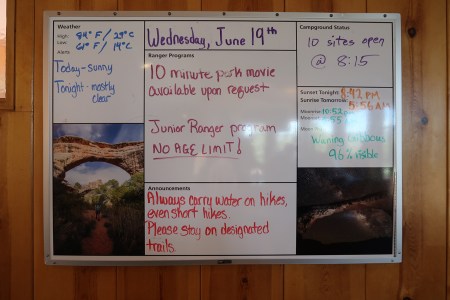 Weather
High: 84°F / 29°C
Low: 61°F / 14°C
Alerts
Today - sunny
Tonight - mostly
clear
Wednesday, June 19th
Ranger Programs
10 minute park movie
available upon request
Junior Ranger program
NO AGE LIMIT!
Announcements
Always carry water on hikes,
even short hikes.
Please stay on designated
trails.
Campground Status
10 sites open
@ 8:15
Sunset Tonight 8:42 PM
Sunrise Tomorrow 5:56 AM
Moonrise 10:52 PM
Waning Gibbous
96% visible